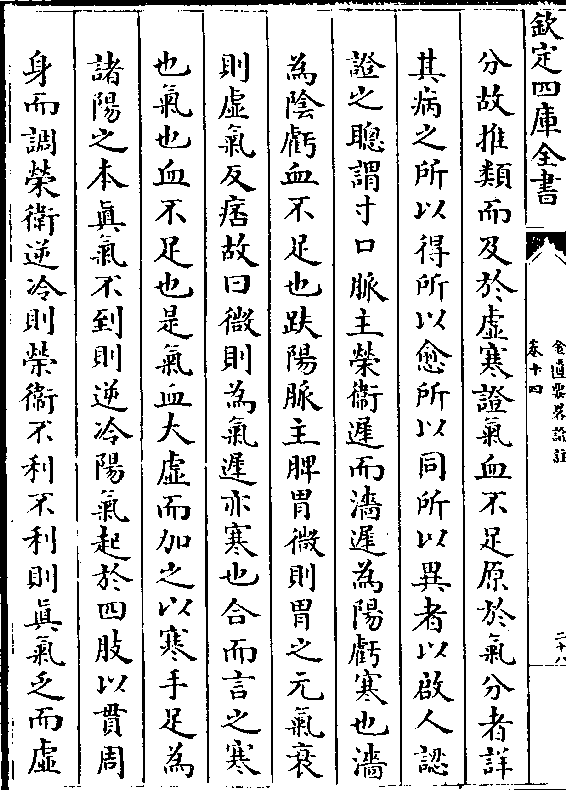 欽定四庫全書
金匱要畧論註
卷十四
二十八
分故推類而及於虛寒證氣血不足原於氣分者詳
其病之所以得所以愈所以同所以異者以啟人認
證之聰謂寸口脈主榮衞遲而濇遲為陽虧寒也濇
為陰虧血不足也趺陽脈主脾胃微則胃之元氣衰
則虛氣反痞故曰微則為氣遲亦寒也合而言之寒
也氣也血不足也是氣血大虛而加之以寒手足為
諸陽之本真氣不到則逆冷陽氣起於四肢以貫周
身而調榮衞逆冷則榮衞不利不利則真氣乏而虛